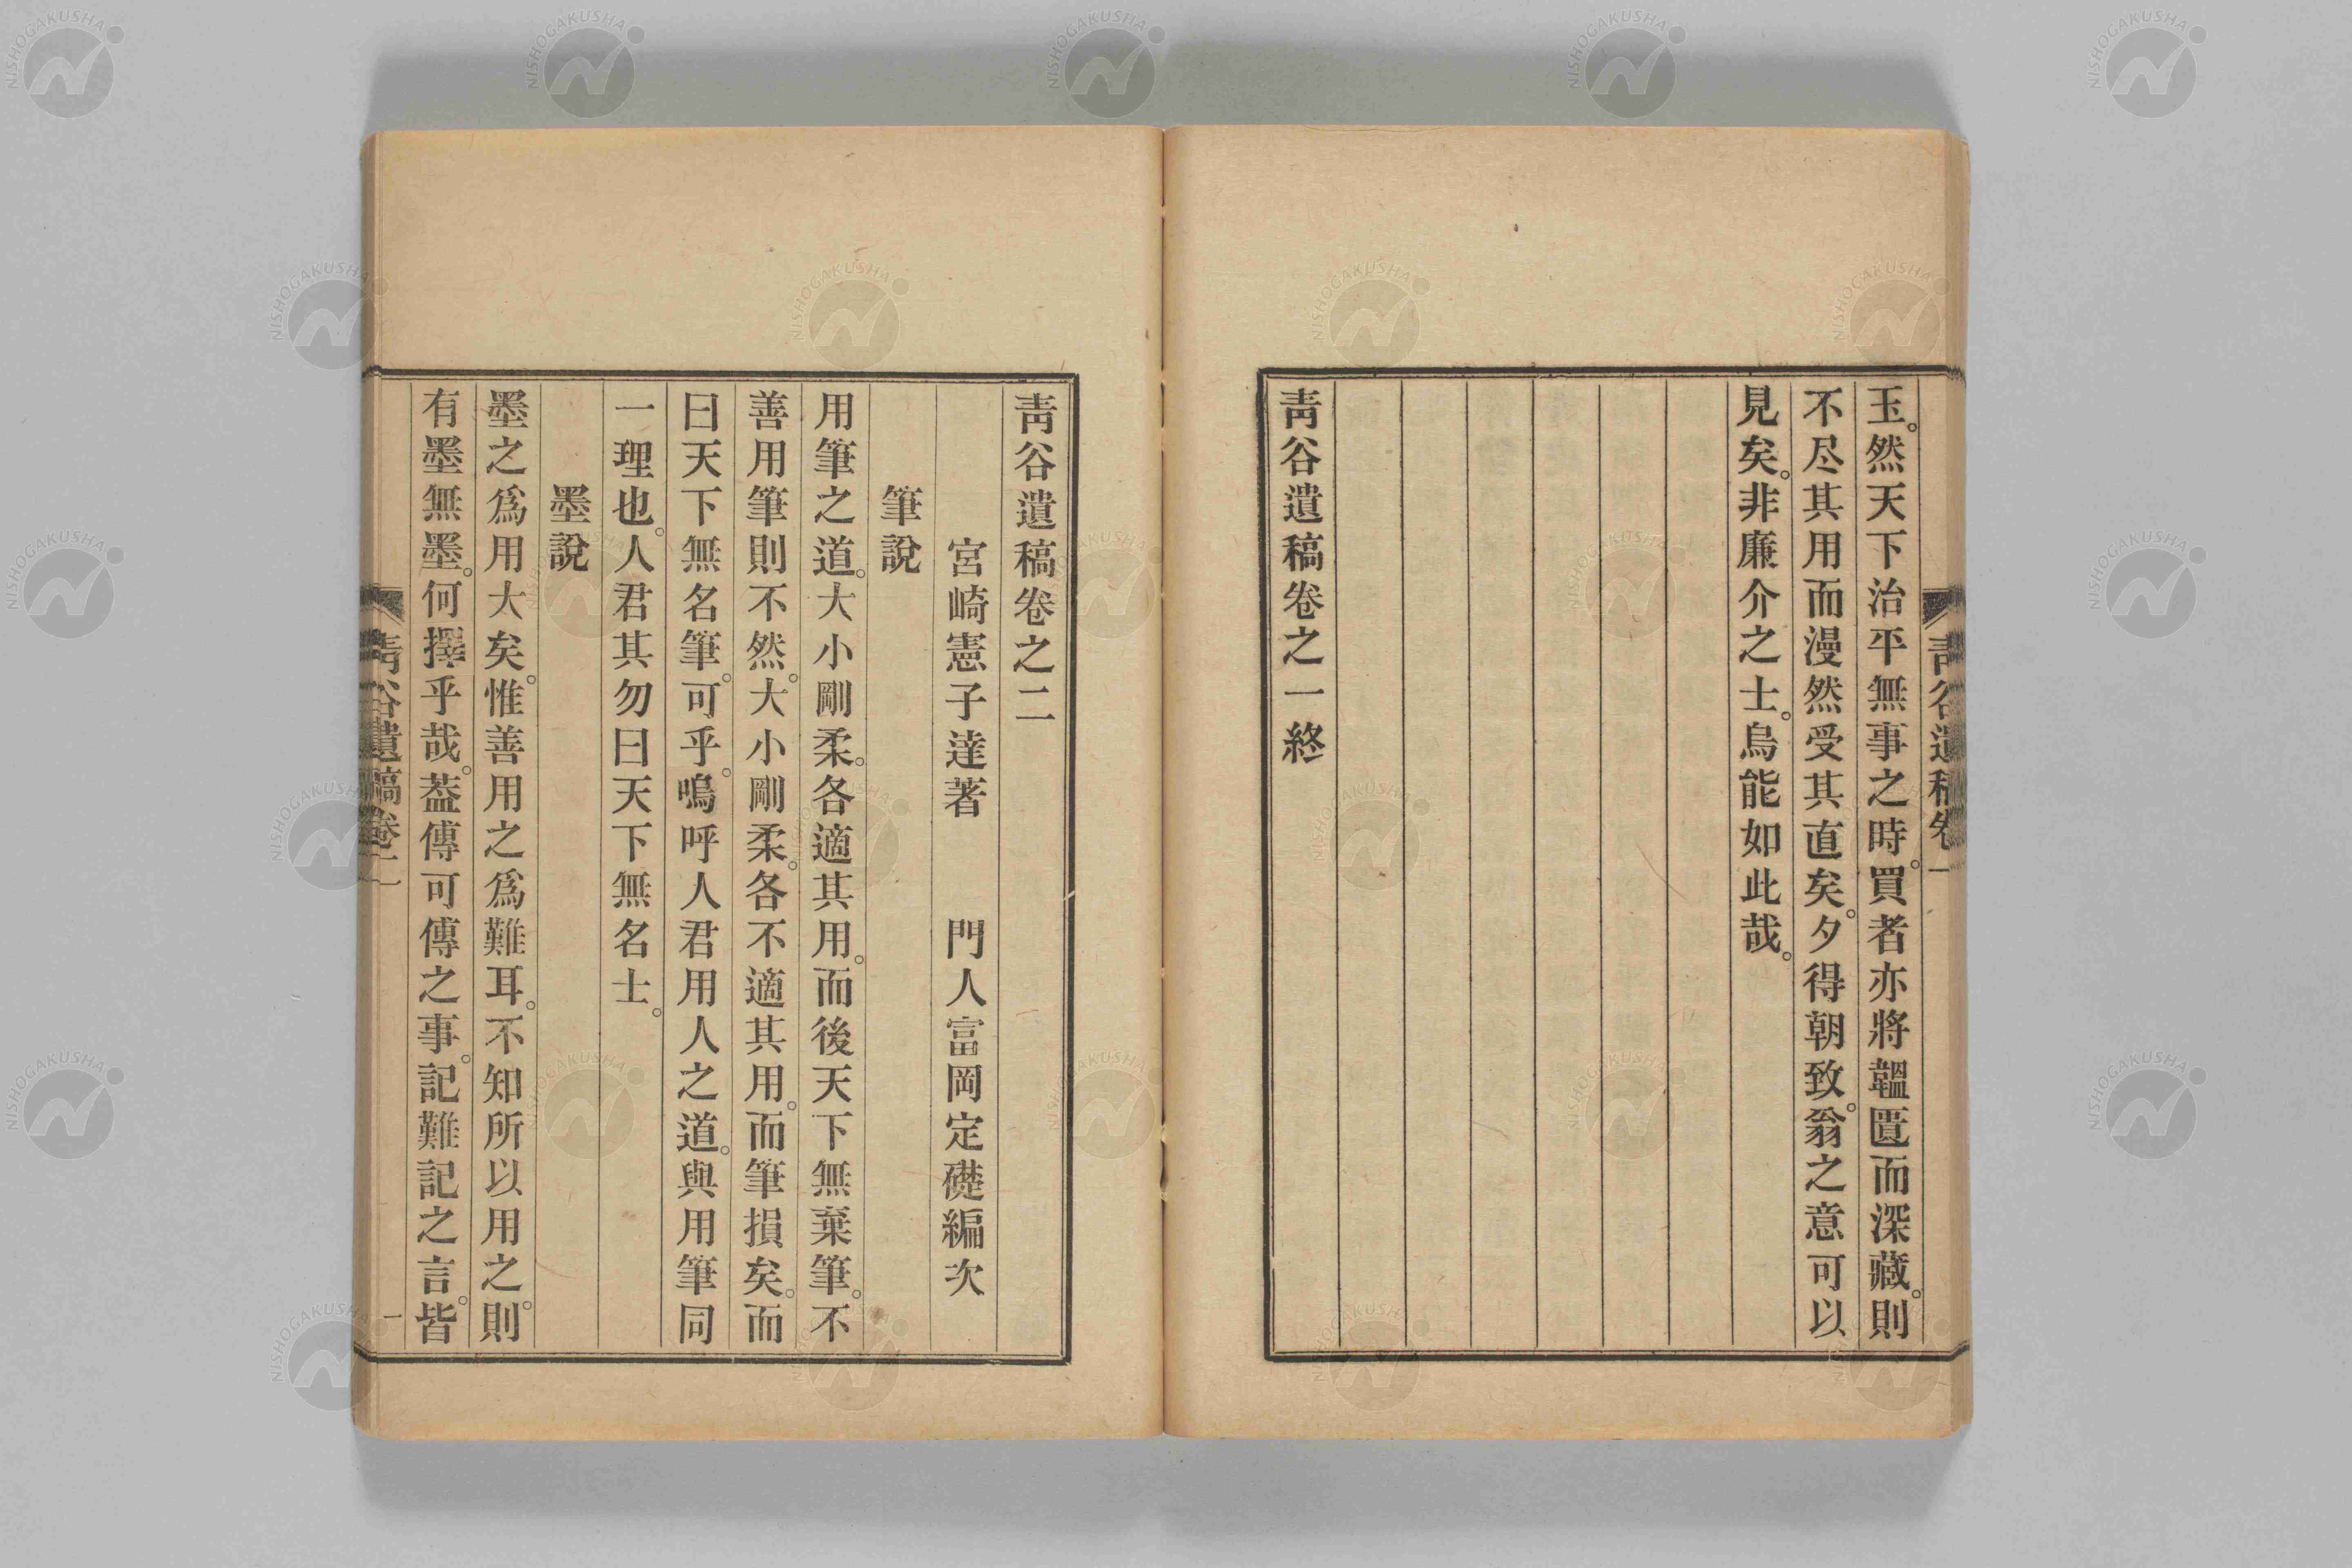 玉。然天下治平無事之時。買者亦將韞匱而深藏。則
不尽其用而漫然受其直矣。夕得朝致。翁之意可以
見矣。非廉介之士。烏能如此哉。
靑谷遺稿卷之一終
靑谷遺稿卷一
靑谷遺稿卷之二
宮崎憲子達著 門人富岡定礎編次
筆說
用筆之道。大小剛柔。各適其用。而後天下無棄筆。不
善用筆則不然。大小剛柔。各不適其用。而筆損矣。而
曰天下無名筆。可乎。嗚呼人君用人之道。與用筆同
一理也。人君其勿曰天下無名士。
墨說
墨之爲用大矣。惟善用之爲難耳。不知所以用之。則
有墨無墨。何擇乎哉。葢傳可傳之事。記難記之言。皆
靑谷遺稿卷二 一
NISHOGAKUSHA